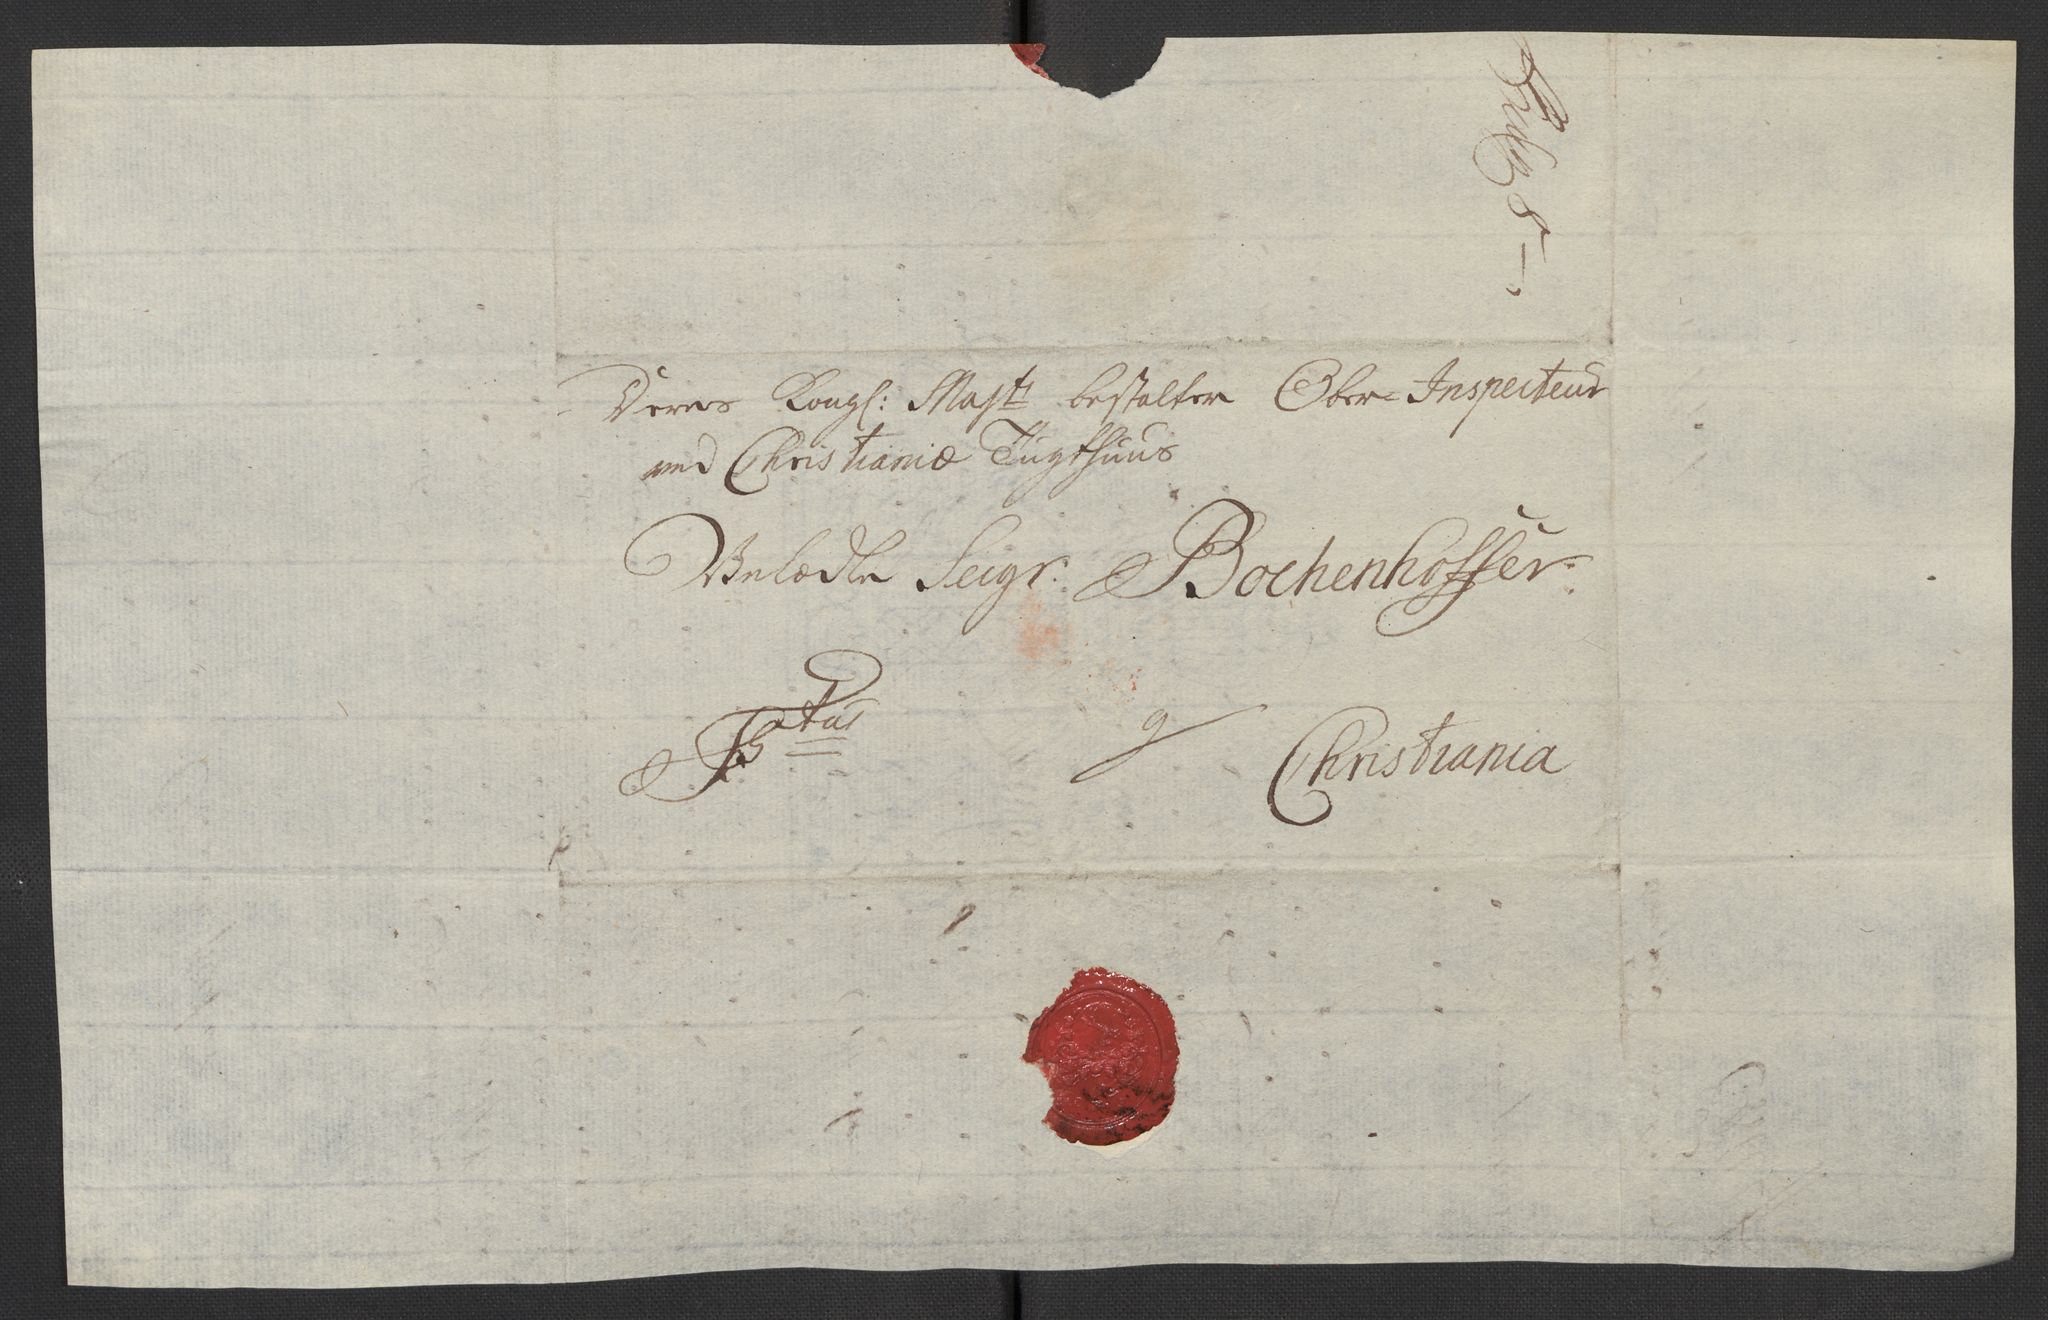 Deres Kongl: Mayts bestalter Ober-Inspecteur
ved Christianiæ Tugthuus
Velædle Seigr: Bochenhoffer.
Christiania